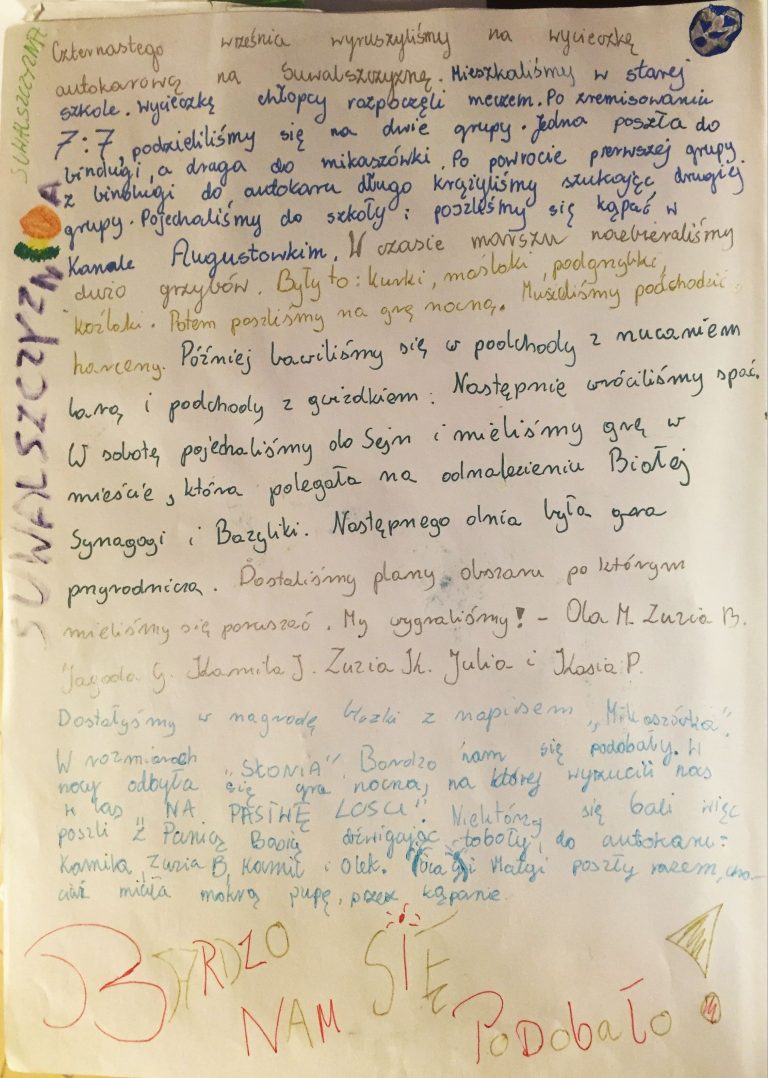 SUWALSZCZYZNA
SUWALSZCZYZNA
Czternastego września wyruszyliśmy na wycieczkę
autokarową na Suwalszczyznę. Mieszkaliśmy w starej
szkole. Wycieczkę chłopcy rozpoczęli meczem. Po zremisowaniu
7:7, podzieliliśmy się na dwie grupy. Jedna poszła do
bindugi, a draga do mikaszówki. Po powrocie pierwszej grupy
z bindugi do autokaru długo krążyliśmy szukając drugiej
grupy. Pojechaliśmy do szkoły i poszliśmy się kąpać w
Kanale Augustowkim. W czasie marszu nazbieraliśmy
dużo grzybów. Były to: kurki, maślaki, podgrzybki,
koźlaki. Potem poszliśmy na grę nocną. Musieliśmy podchodzić
harcerzy. Później bawiliśmy się w podchody z rzucaniem
larą i podchody z gwizdkiem. Następnie wróciliśmy spać.
W sobotę pojechaliśmy do Sejn i mieliśmy grę w
mieście, która polegała na odnalezieniu Białej
Synagogi i Bazyliki. Następnego dnia była gra
przyrodnicza. Dostaliśmy plany obszaru po którym
mieliśmy się poruszać. My wygraliśmy! - Ola M. Zuzia B.
Jagoda G. Kamila J. Zuzia K. Julia i Kasia P.
Dostałyśmy w nagrodę bluzki z napisem "Mikaszówka".
W rozmiarach "SŁONIA". Bardzo nam się podobały. W
nocy odbyła się gra nocna, na której wyrzucili nas
w las "NA PASTWĘ LOSU". Niektórzy się bali więc
poszli z Panią Basią dźwigając toboły, do autokaru:
Kamila, Zuzia B, Kamil i Olek. i Małgi poszły razem, cho-
ciaż miała mokrą pupę, przez kąpanie.
BARDZO
NAM SIĘ
PODOBAŁO!